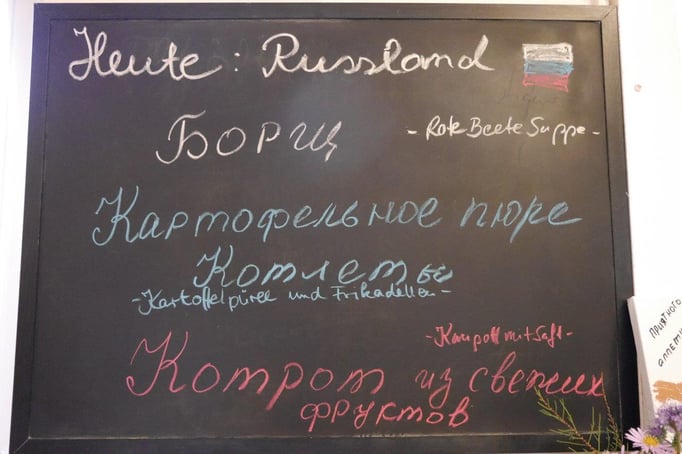 Heute: Russland
Борщ
- Rote Beete Suppe -
Картофельное пюре
Котлеты
- Kartoffelpüree und Frikadellen -
- Kompott mit Saft -
Компот из свежих
фруктов
приятного
аппети